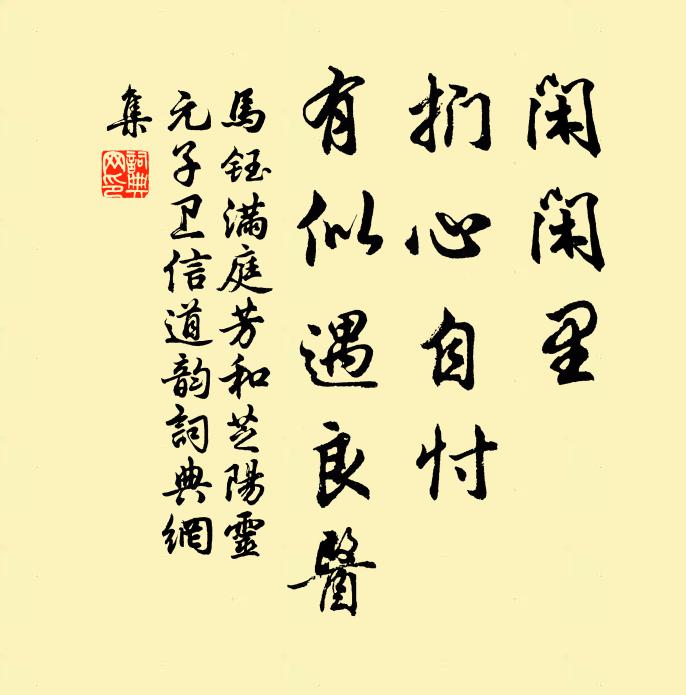 闲闲里
扪心自忖
有似遇良醫
馬鈺满庭芳和芝陽靈
元子卫信道韵詞典網
集
詞典
网印